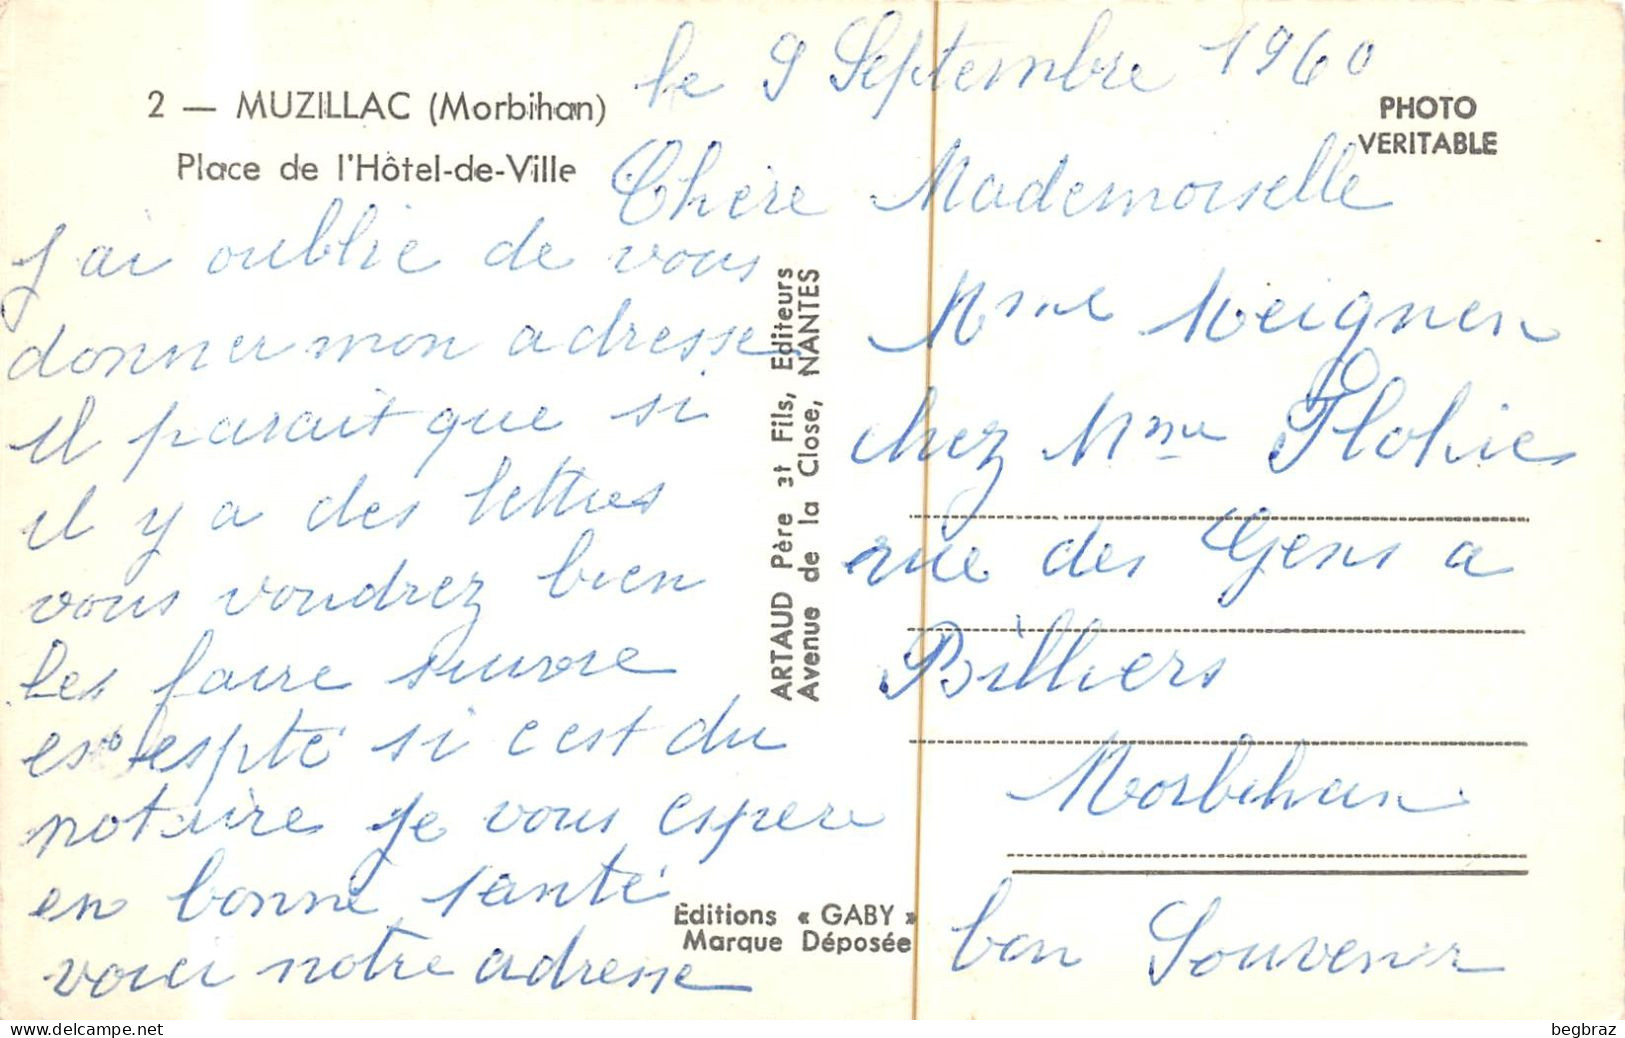 le 9 Septembre 1960
2 — MUZILLAC (Morbihan)
Place de l'Hôtel-de-Ville
PHOTO
VERITABLE
Chère Mademoiselle
j'ai oublié de vous
donner mon adresse
il parait que si
il y a des lettres
vous voudrez bien
les faire suivre
si c'est du
notaire je vous espere
en bonne santé
voici notre adresse
ARTAUD Père 3t Fils, Editeurs
Avenue de la Close, NANTES
Editions « GABY »
Marque Déposée
Mme Meignen
chez Mme Flohic
rue des Gens a
Billiers
Morbihan
bon Souvenir
delcampe.net
begbraz